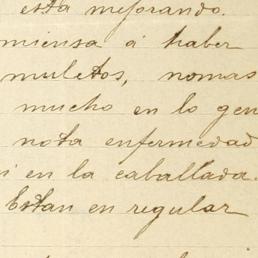 está mejorando.
miensa á haber
muletos, nomas
mucho en lo gen
nota enfermedad
i en la caballada.
Estan en regular